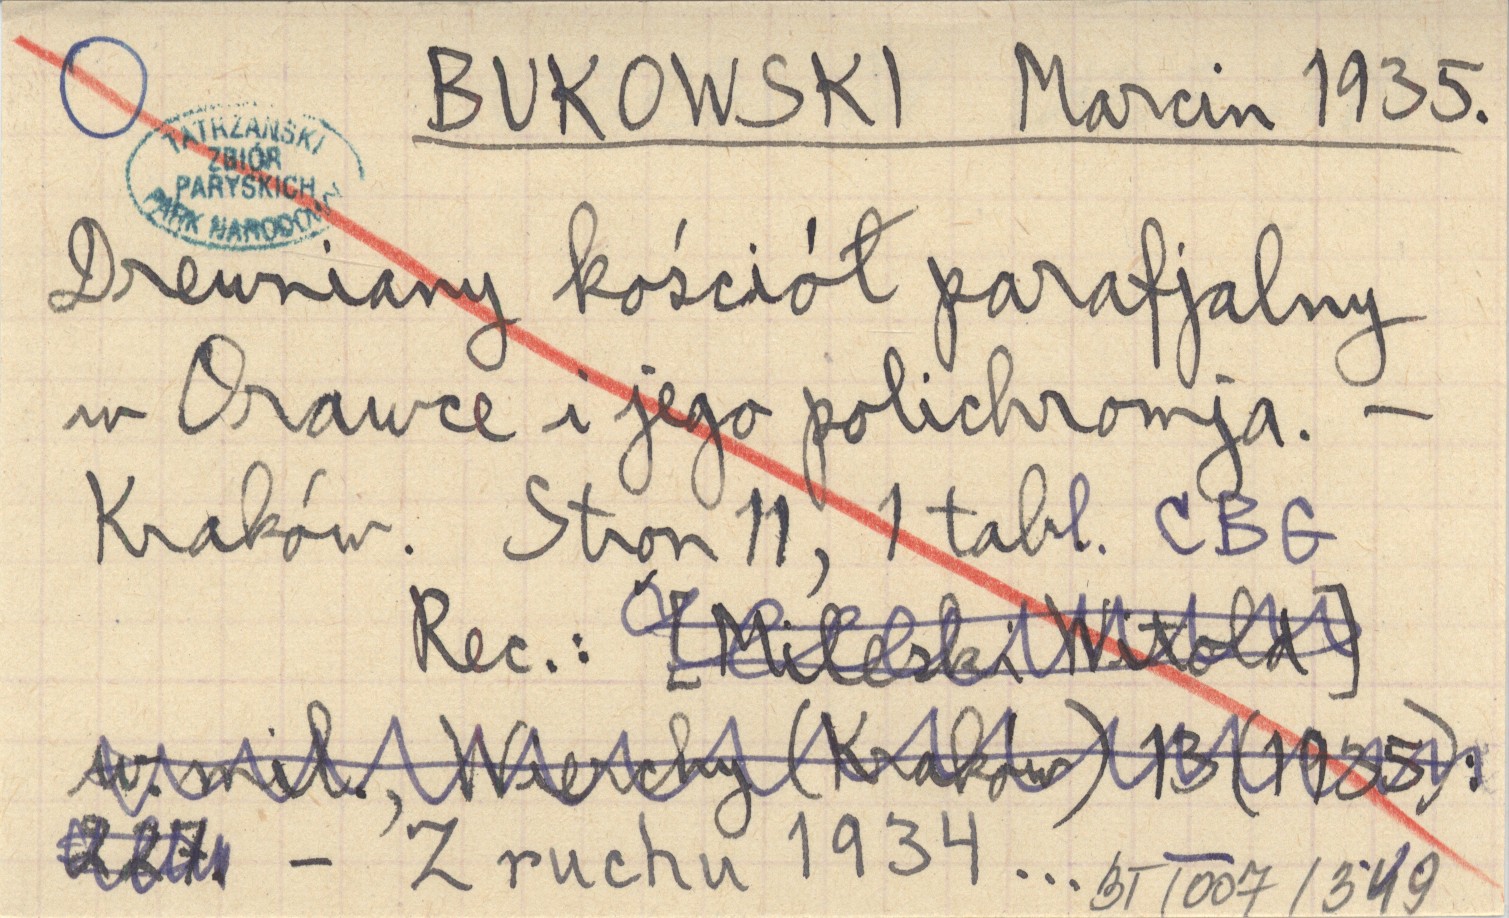 BUKOWSKI Marcin 1935.
TATRZAŃSKI
ZBIÓR
PARYSKICH
PARK NARODOWY
Drewniany kościół parafjalny
w Orawce i jego polichromja. —
Kraków. Stron 11, 1 tabl. CBG
Rec.: [Mileski Witold]
w. mil., Wierchy (Kraków) 13 (1935):
227. — Z ruchu 1934 ...
007/349